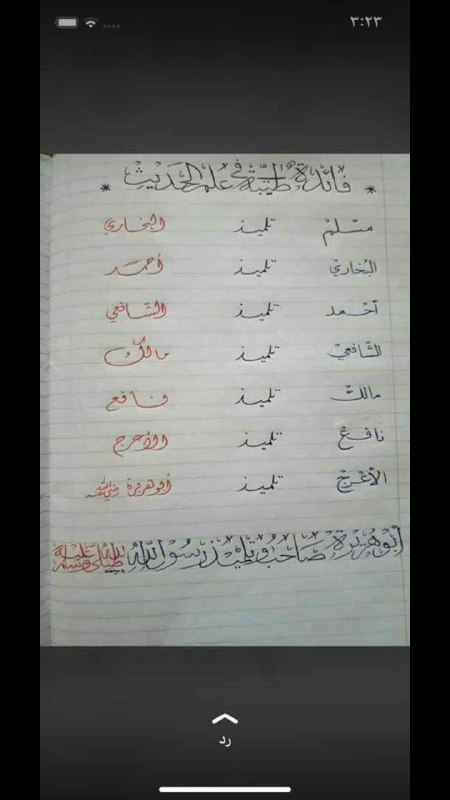 ٣:٢٣
* فائدة طيّبة في علم الحديث *
مسلم تلميذ البخاري
البخاري تلميذ أحمد
أحمد تلميذ الشافعي
الشافعي تلميذ مالك
مالك تلميذ نافع
نافع تلميذ الأعرج
الأعرج تلميذ أبو هريرة رضي الله عنه
أبو هريرة صاحب وتلميذ رسول الله صلى الله عليه وسلم
رد